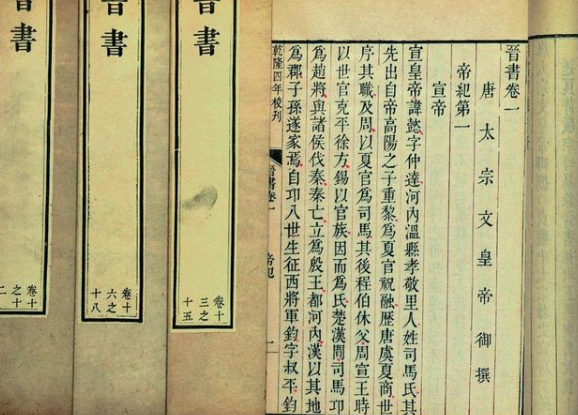 晉書卷一
唐太宗文皇帝御撰
帝紀第一
宣帝
宣皇帝諱懿字仲達河內溫縣孝敬里人姓司馬氏其
先出自帝高陽之子重黎爲夏官祝融歷唐虞夏商世
序其職及周以夏官爲司馬其後程伯休父周宣王時
以世官克平徐方錫以官族因而爲氏楚漢閒司馬卬
爲趙將與諸侯伐秦秦亡立爲殷王都河內漢以其地
爲郡子孫遂家焉自卬八世生征西將軍鈞字叔平鈞
乾隆四年校刊
晉書卷一
帝紀
一
晉書
卷十
三之
十五
晉書
卷十
六之
十八
晉書
卷十
之十
二